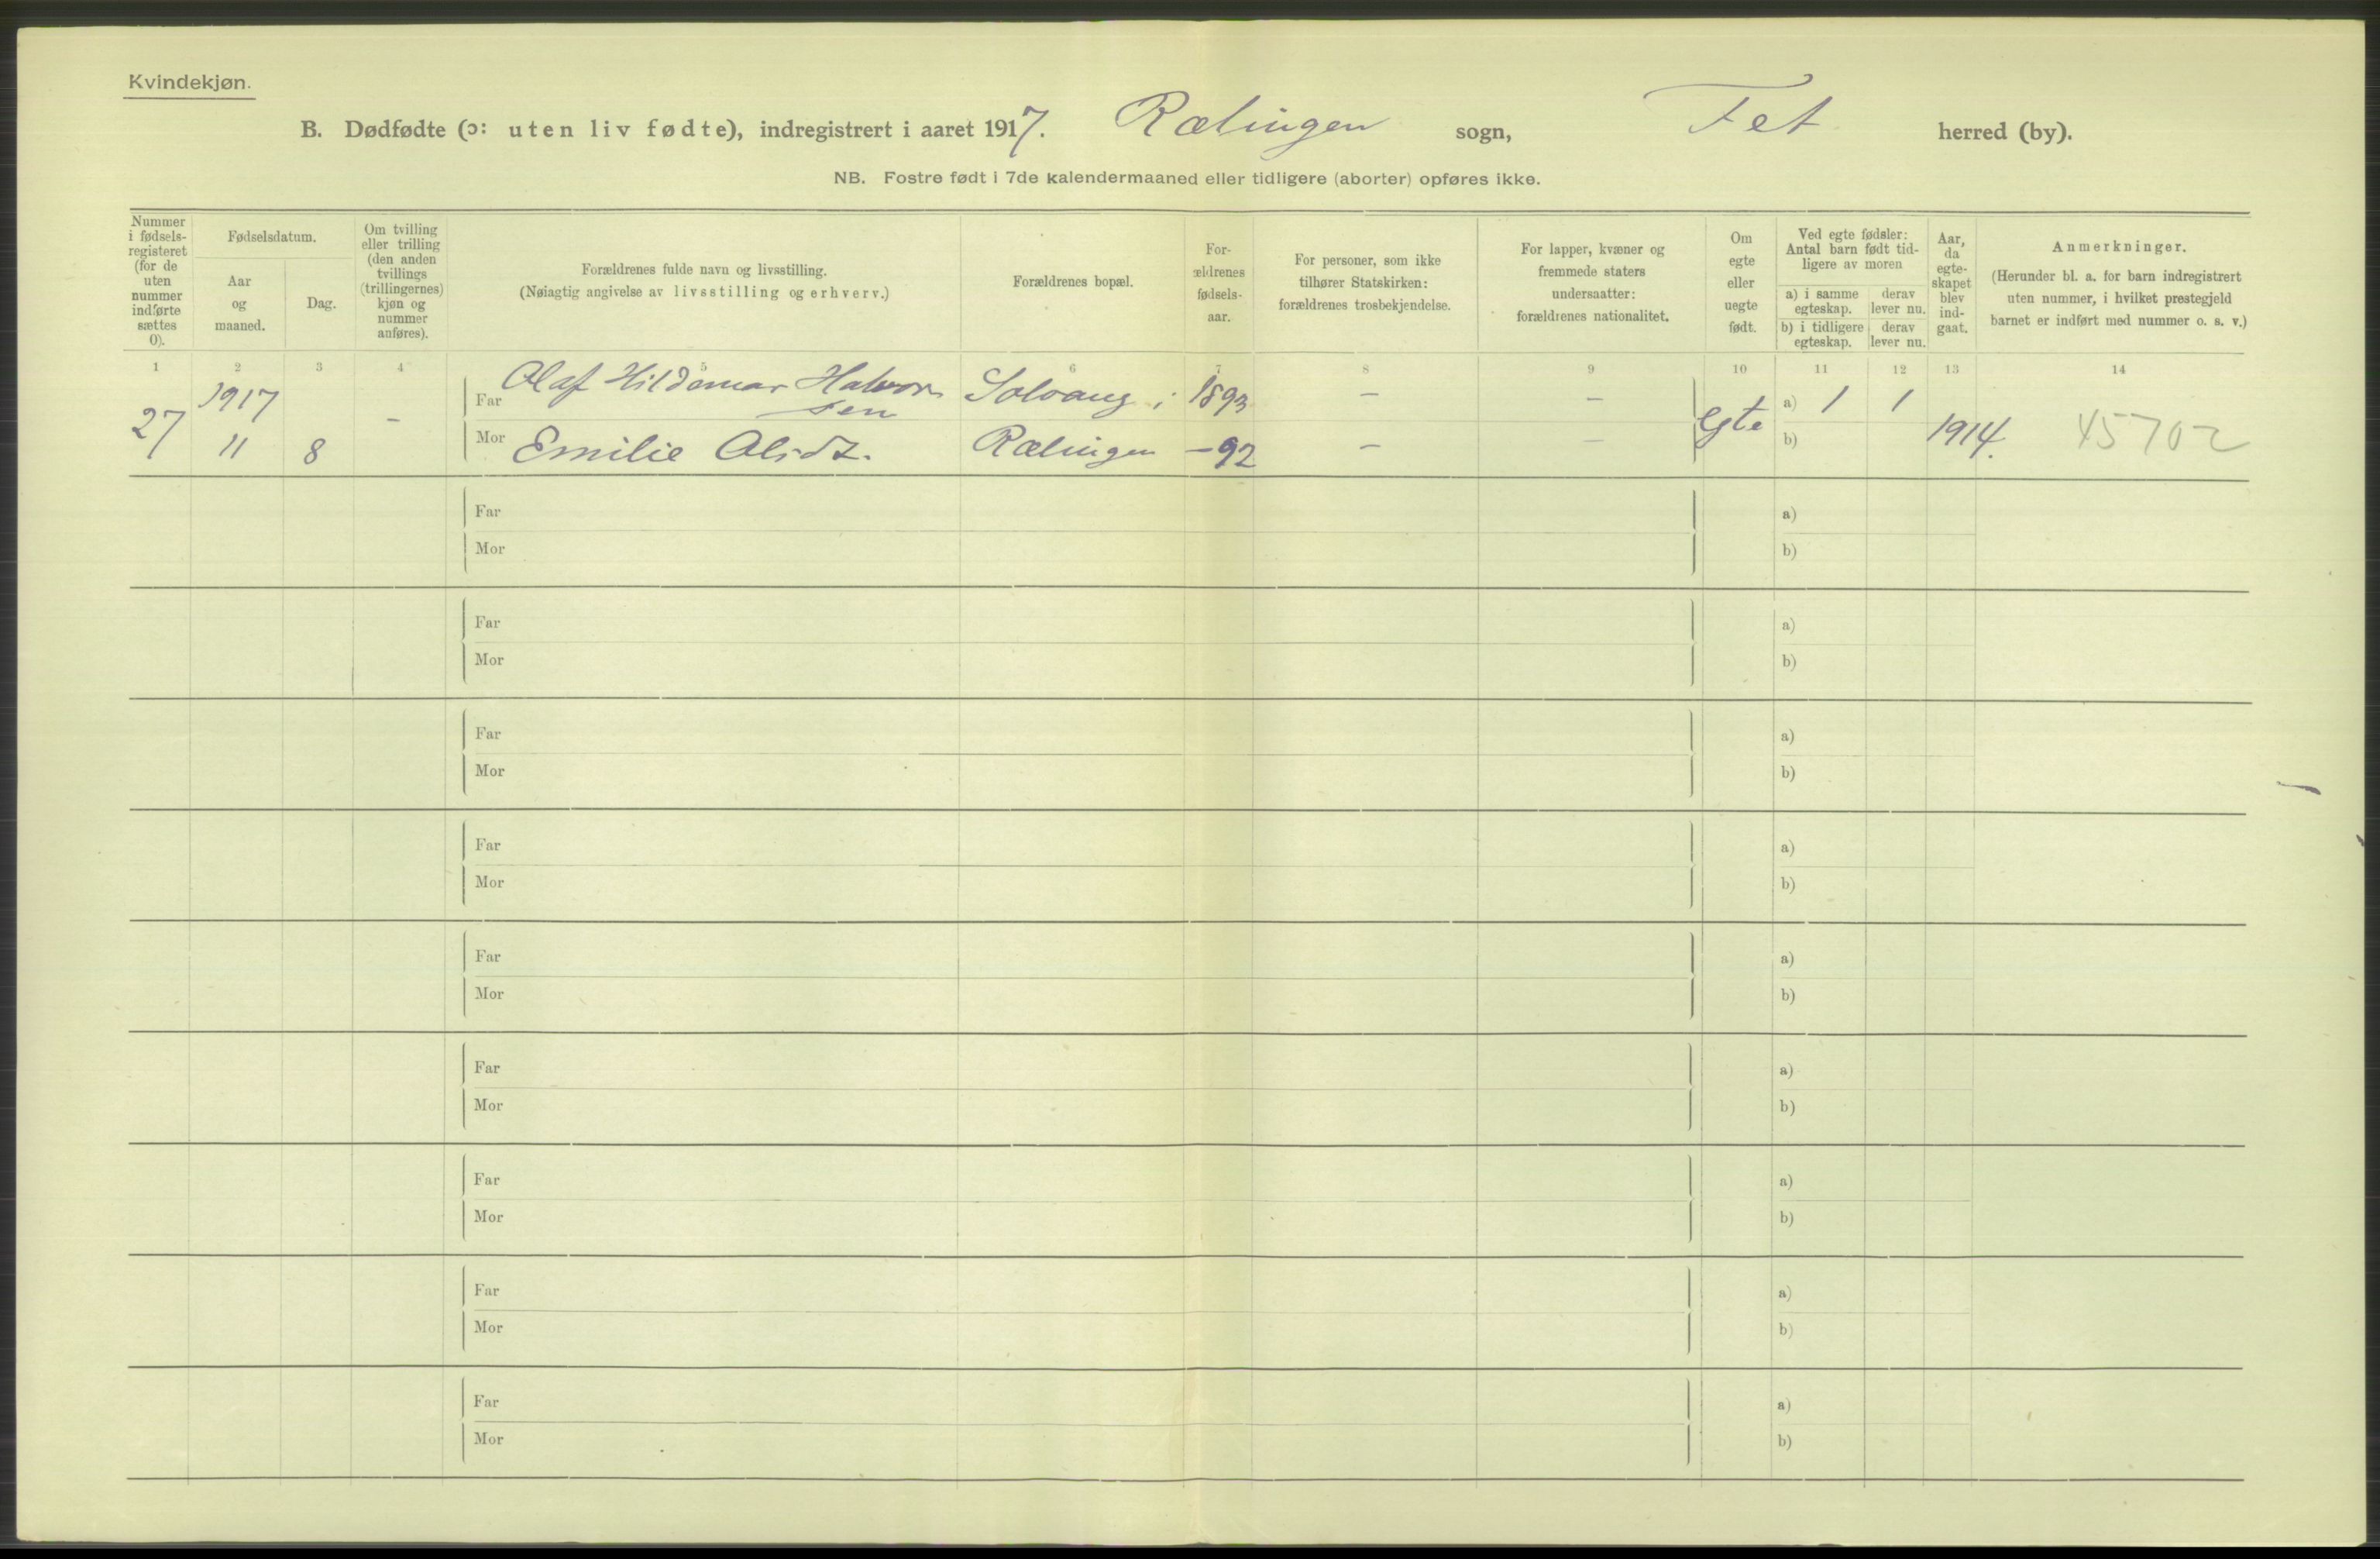 Kvindekjøn.
B. Dødfødte (ɔ: uten liv fødte), indregistrert i aaret 1917. Rælingen sogn, Fet herred (by).
NB. Fostre født i 7de kalendermaaned eller tidligere (aborter) opføres ikke.
Nummer i fødsels-registeret (for de uten nummer indførte sættes 0).
Fødselsdatum.
Aar og maaned.
Dag.
Om tvilling eller trilling (den anden tvillings (trillingernes) kjøn og nummer anføres).
Forældrenes fulde navn og livsstilling.
(Nøiagtig angivelse av livsstilling og erhverv.)
Forældrenes bopæl.
For-ældrenes fødsels-aar.
For personer, som ikke tilhører Statskirken: forældrenes trosbekjendelse.
For lapper, kvæner og fremmede staters undersaatter: forældrenes nationalitet.
Om egte eller uegte født.
Ved egte fødsler: Antal barn født tid-ligere av moren
a) i samme egteskap. derav lever nu.
b) i tidligere egteskap. derav lever nu.
Aar, da egte-skapet blev ind-gaat.
Anmerkninger.
(Herunder bl. a. for barn indregistrert uten nummer, i hvilket prestegjeld barnet er indført med nummer o. s. v.)
1 2 3 4 5 6 7 8 9 10 11 12 13 14
27 1917 11 8 –
Far Olaf Hildemar Halvorsen Solvang i 1893 – – Egte a) 1 1
Mor Emilie Rælingen – 92 – – b) 1914. 45702
Far a)
Mor b)
Far a)
Mor b)
Far a)
Mor b)
Far a)
Mor b)
Far a)
Mor b)
Far a)
Mor b)
Far a)
Mor b)
Far a)
Mor b)
Far a)
Mor b)